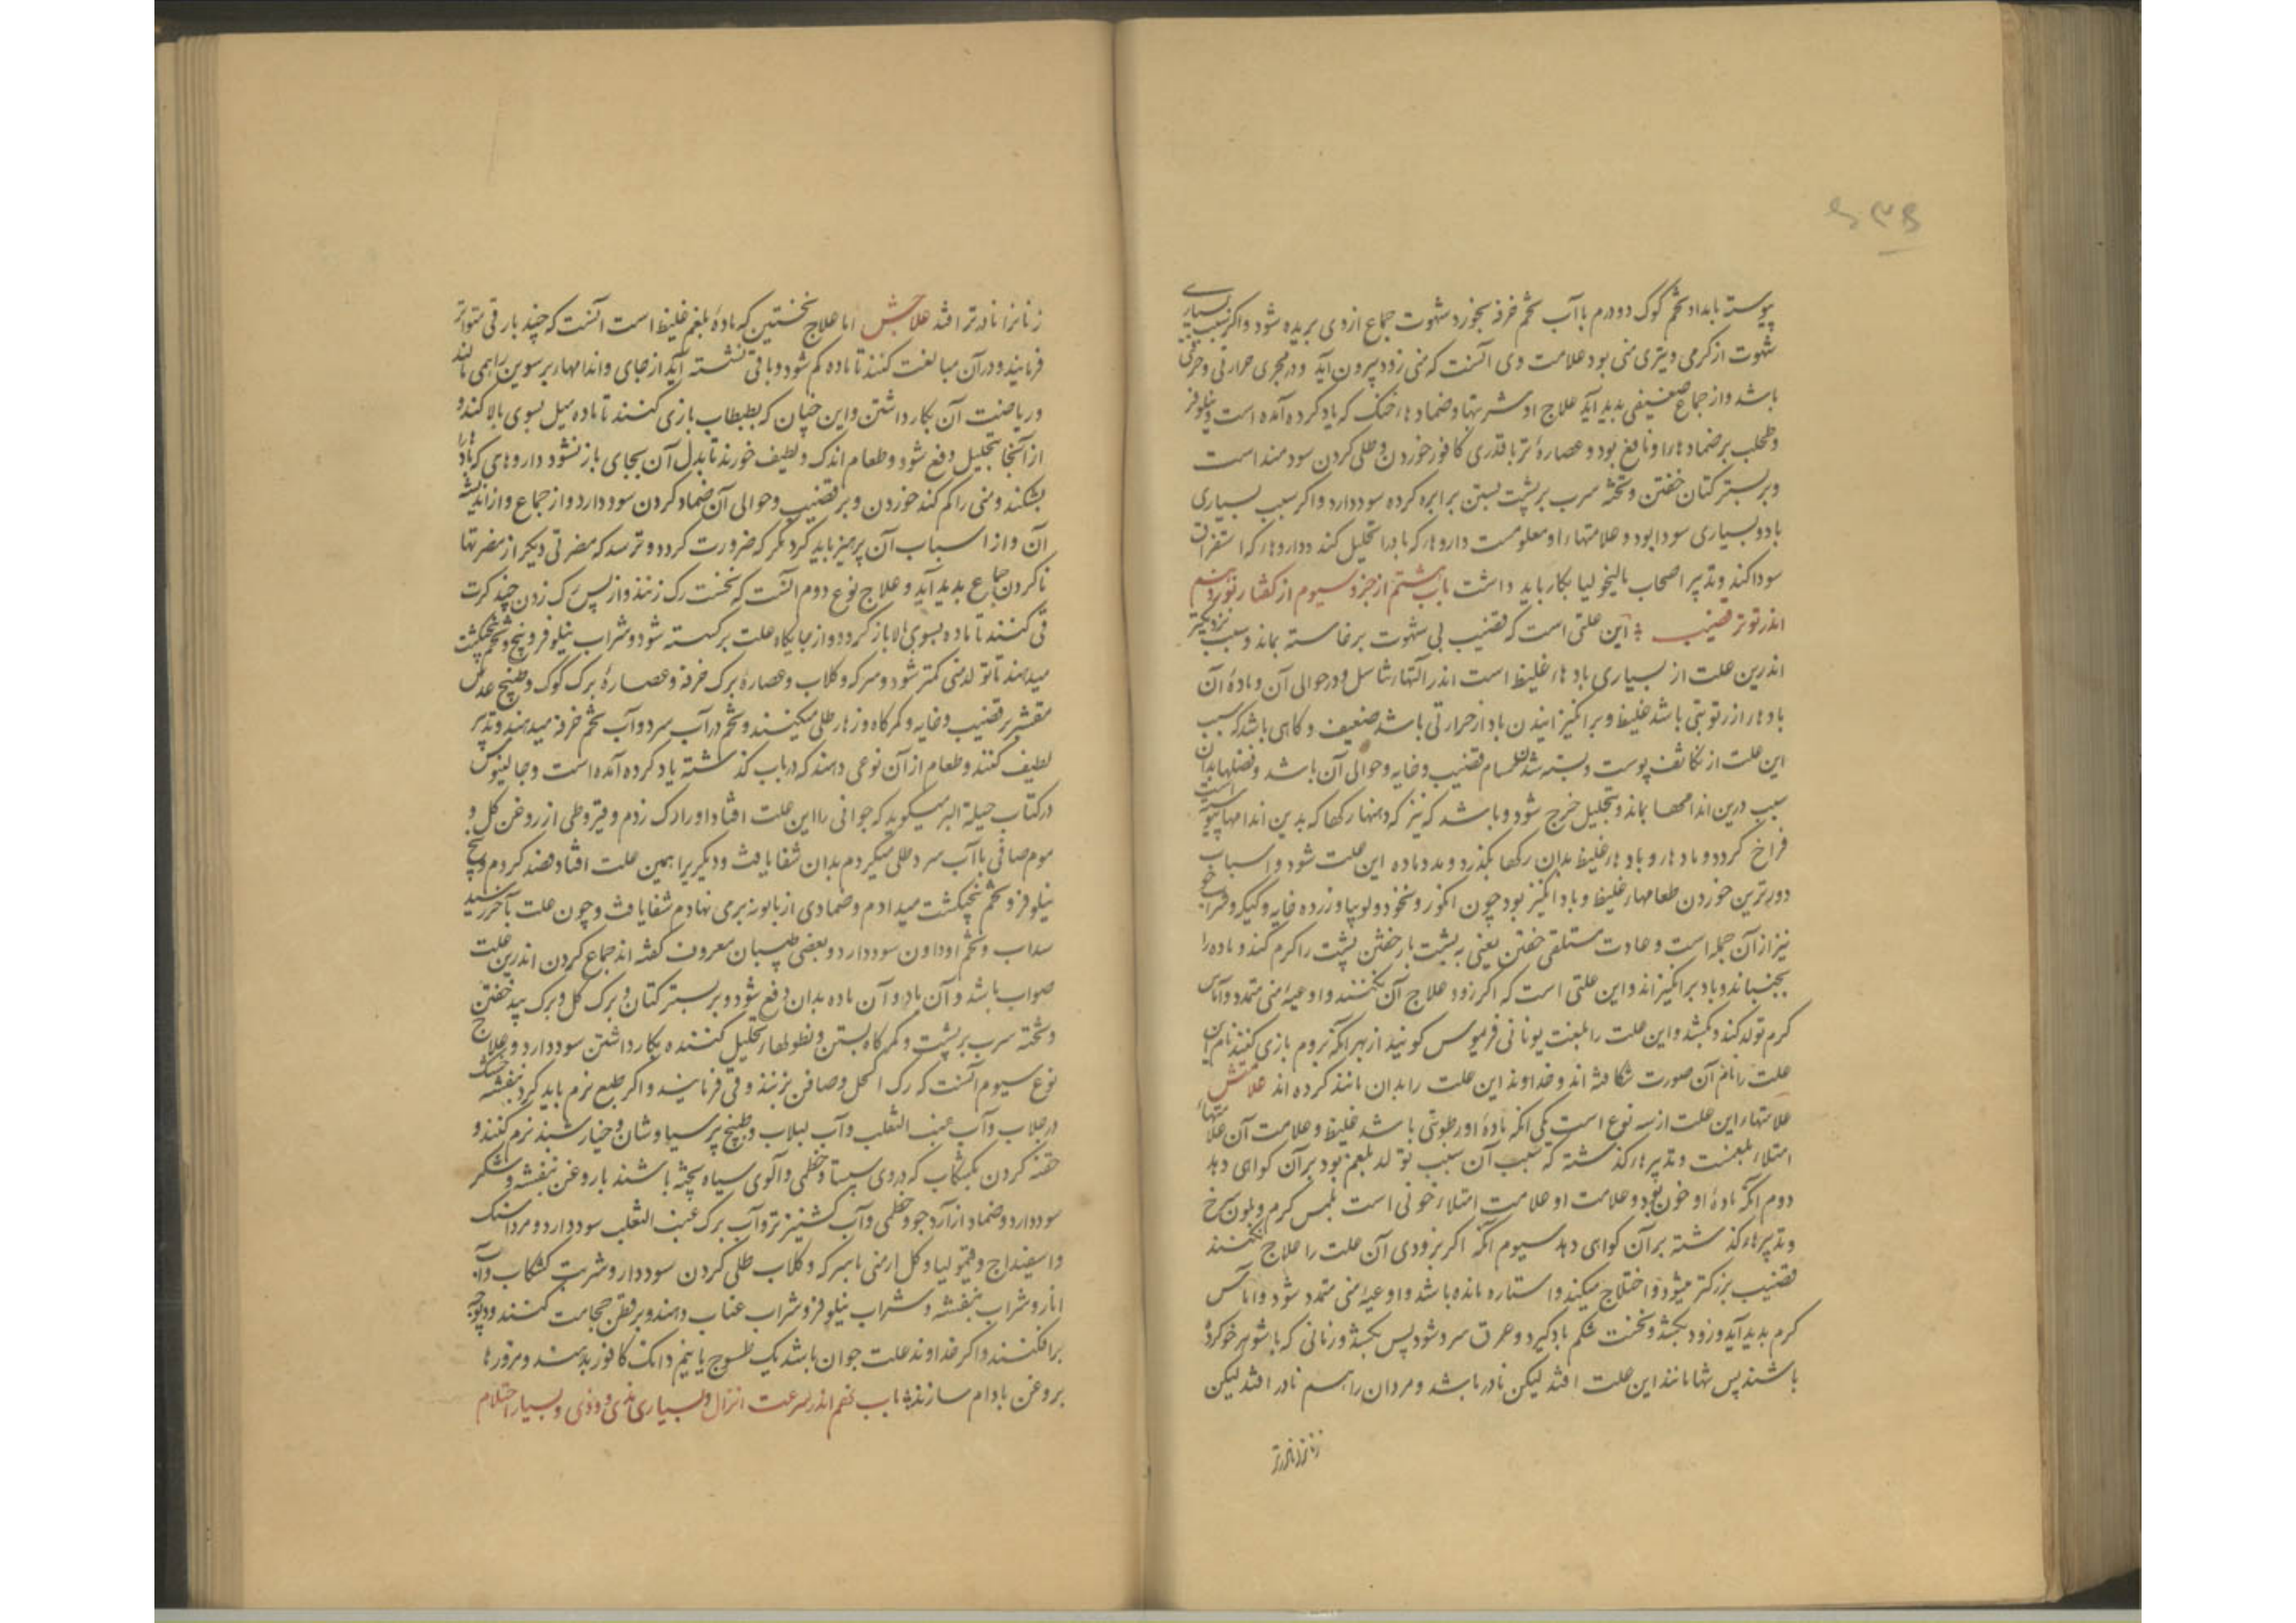 پیوسته بامداد تخم کوک دو درم با آب تخم خرفه بخورد شهوت جماع از وی بریده شود و اکر سبب بسیاری
شهوت از کرمی و تیزی منی بود علامت وی آنست که منی زود بیرون آید و در مجری حرارتی و حرقتی
باشد و از جماع ضعیفی پدید آید علاج او شربتها و ضمادهاء خنک که یاد کرده آمده است و نیلوفر
و طحلب بر ضمادها را و نافع بود و عصارهٔ تر با قدری کافور خوردن و طلی کردن سودمند است
و بر بستر کتان خفتن و تختهٔ سرب بر پشت بستن برابر کرده سود دارد و اکر سبب بسیاری
باد و بسیاری سودا بود و علامتهاء او معلومست داروهاء که باد را تحلیل کند و داروهاء که استفراغ
سودا کند و تدبیر اصحاب مالیخولیا بکار باید داشت باب هشتم از جزو سیوم از کفتار نوزدهم
اندر توتر قضیب این علتی است که قضیب بی شهوت برخاسته بماند و سبب نزدیکتر
اندرین علت از بسیاری بادهاء غلیظ است اندر آلتهاء تناسل و در حوالی آن و مادهٔ آن
بادها از رتوبتی باشد غلیظ و برانکیزانیدن باد از حرارتی باشد ضعیف و کاهی باشد که سبب
این علت از تکاثف پوست و بسته شدن مسام قضیب و خایه و حوالی آن باشد و فضلها بدان
سبب درین اندامها بماند و بتحلیل خرج شود و باشد که نیز که دهنهاء رکها که بدین اندامها پیوسته است
فراخ کردد و مادها و بادهاء غلیظ بدان رکها بکذرد و مدد ماده این علت شود و اسباب
دورترین خوردن طعامهاء غلیظ و باد انکیز بود چون انکور و نخود و لوبیا و زرده خایه و کیکر و شراب
نیز از آن جمله است و عادت مستلقی خفتن یعنی به پشت باز خفتن پشت را کرم کند و ماده را
بجنباند و باد برانکیزاند و این علتی است که اکر زود علاج آن نکنند و اوعیهٔ منی متمدد و آماس
کرم تولد کند و بکشد و این علت را بلغت یونانی فریموس کویند از بهر آنکه بروم بازی کنند نام این
علت را نام آن صورت شکافته اند و خداوند این علت را بدان مانند کرده اند علامتش
علامتهاء این علت از سه نوع است یکی آنکه مادهٔ او رطوبتی باشد غلیظ و علامت آن علامتهاء
امتلاء بلغمست و تدبیرهاء کذشته که سبب آن سبب تولد بلغم بود بر آن کواهی دهد
دوم آنکه مادهٔ او خون بود و علامت او علامت امتلاء خونی است بلمس کرم و بلون سرخ
و تدبیرهاء کذشته بر آن کواهی دهد سیوم آنکه اکر بزودی آن علت را علاج نکنند
قضیب بزرکتر میشود و اختلاج میکند و استاره مانده باشد و اوعیهٔ منی متمدد شود و اماس
کرم پدید آید و زود بکشد و نخست شکم باد کیرد و عرق سرد شود پس بکشد و زنانی که با شوهر خو کرده
باشند پس تنها مانند این علت افتد لیکن نادر باشد و مردان را هم نادر افتد لیکن
زنانرا نادرتر
زنانرا نادرتر افتد علاجش اما علاج نخستین که مادهٔ بلغم غلیظ است آنست که چند بار قی متواتر
فرمایند و در آن مبالغت کنند تا ماده کم شود و باقی نشسته آید از جای و اندامهاء برسوین را همی مالند
و ریاضت آن بکار داشتن و این چنان که بطبطاب بازی کنند تا ماده میل بسوی بالا کند و
از آنجا بتحلیل دفع شود و طعام اندک و لطیف خورند تا بدل آن بجای باز نشود داروهای که بادها را
بشکند و منی را کم کند خوردن و بر قضیب و حوالی آن ضماد کردن سود دارد و از جماع و از اندیشه
آن و از اسباب آن پرهیز باید کرد مکر که ضرورت کردد و ترسد که مضرتی دیکر از مضرتها
ناکردن جماع پدید آید و علاج نوع دوم آنست که نخست رک زنند و از پس رک زدن چند کرت
قی کنند تا ماده بسوی بالا باز کردد و از جایکاه علت برکسته شود و شراب نیلوفر و بنج و تخم پنجنکشت
میدهند تا تولد منی کمتر شود و سرکه و کلاب و عصارهٔ برک خرفه و عصارهٔ برک کوک و طبیخ عدس
مقشر بر قضیب و خایه و کمرکاه و زهار طلی میکنند و تخم در آب سرد و آب تخم خرفه میدهند و تدبیر
لطیف کنند و طعام از آن نوعی دهند که در باب کذشته یاد کرده آمده است و جالینوس
در کتاب حیلة البرء میکوید که جوانی را این علت افتاد او را رک زدم و قیروطی از روغن کل و
موم صافی با آب سرد طلی میکردم بدان شفا یافت و دیکریرا همین علت افتاد فصد کردم و بیخ
نیلوفر و تخم پنجنکشت میدادم و ضمادی از بابونه برمی نهادم شفا یافت و چون علت بآخر رسید
سداب و تخم او دادن سود دارد و بعضی طبیبان معروف کفته اند جماع کردن اندرین علت
صواب باشد و آن باد و آن ماده بدان دفع شود و بر بستر کتان و برک کل و برک بید خفتن
و تخته سرب بر پشت و کمرکاه بستن و نطولهاء تحلیل کننده بکار داشتن سود دارد و علاج
نوع سیوم آنست که رک اکحل و صافن بزنند و قی فرمایند و اکر طبع نرم باید کرد بنفشه خشک
در جلاب و آب عنب الثعلب و آب لبلاب و طبیخ پرسیاوشان و خیارشنبر نرم کنند و
حقنه کردن بکشکاب که در وی سپستان و خطمی و آلوی سیاه پخته باشند با روغن بنفشه و شکر
سود دارد و ضماد از آرد جو و خطمی و آب کشنیز تر و آب برک عنب الثعلب سود دارد و مرداسنک
و اسفیداج و قیمولیا و کل ارمنی با سرکه و کلاب طلی کردن سود دارد و شربت کشکاب و آب
انار و شراب بنفشه و شراب نیلوفر و شراب عناب دهند و بر قطن حجامت کنند و دیوچه
برافکنند و اکر خداوند علت جوان باشد یک طسوج یا نیم دانک کافور بدهند و مزورها
بروغن بادام سازند باب نهم اندر سرعت انزال و بسیاری مذی و وذی و بسیار احتلام